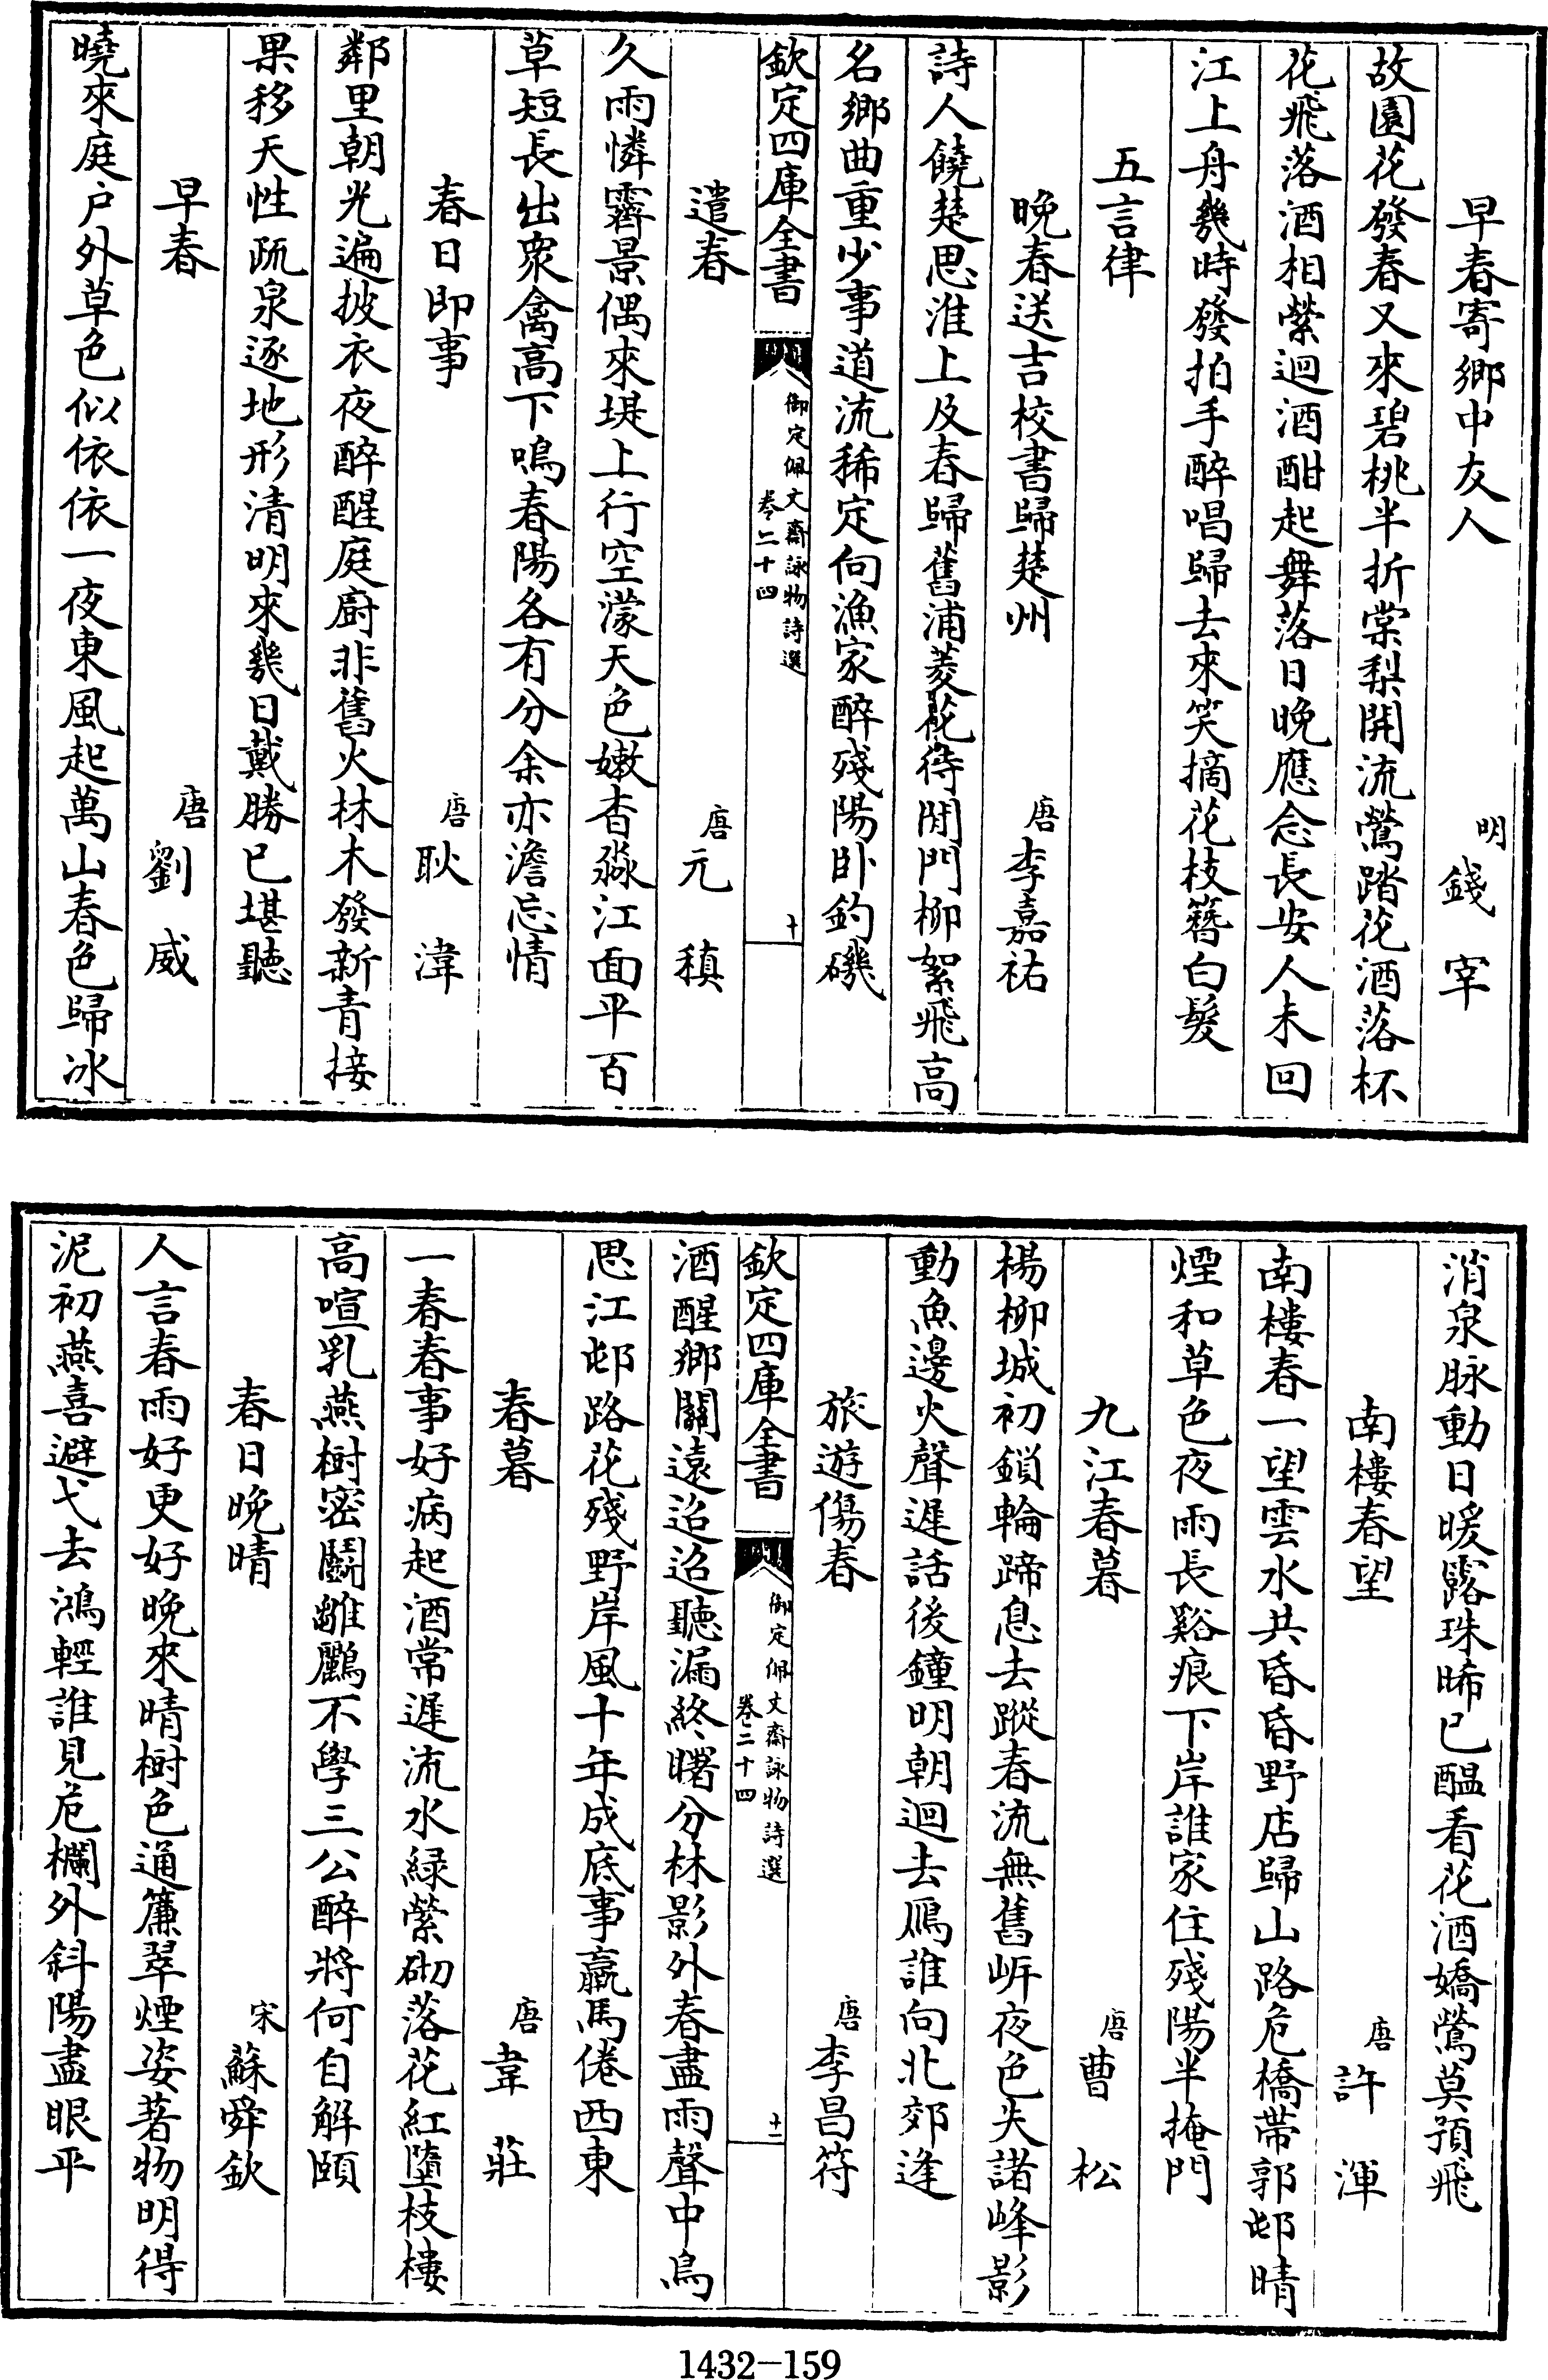 早春寄鄉中友人　明錢　宰
故園花發春又來碧桃半折棠梨開流鶯踏花酒落杯
花飛落酒相縈迴酒酣起舞落日晚應念長安人未回
江上舟幾時發拍手醉唱歸去來笑摘花枝簪白髮
五言律
晚春送吉校書歸楚州　唐李嘉祐
詩人饒楚思淮上及春歸舊浦菱花待閒門柳絮飛高
名鄉曲重少事道流稀定向漁家醉殘陽卧釣磯
欽定四庫全書
御定佩文齋詠物詩選
卷二十四
十
遣春　唐元　稹
久雨憐霽景偶來堤上行空濛天色嫩杳淼江面平百
草短長出衆禽高下鳴春陽各有分余亦澹忘情
春日即事　唐耿　湋
鄰里朝光遍披衣夜醉醒庭廚非舊火林木發新青接
果移天性疏泉逐地形清明來幾日戴勝已堪聽
早春　唐劉　威
曉來庭户外草色似依依一夜東風起萬山春色歸冰
消泉脉動日暖露珠晞已醖看花酒嬌鶯莫預飛
南樓春望　唐許　渾
南樓春一望雲水共昏昏野店歸山路危橋帶郭邨晴
煙和草色夜雨長谿痕下岸誰家住殘陽半掩門
九江春暮　唐曹　松
楊柳城初鎖輪蹄息去蹤春流無舊岍夜色失諸峰影
動魚邊火聲遲話後鐘明朝迴去鴈誰向北郊逢
旅遊傷春　唐李昌符
欽定四庫全書
御定佩文齋詠物詩選
卷二十四
十一
酒醒鄉關遠迢迢聽漏終曙分林影外春盡雨聲中鳥
思江邨路花殘野岸風十年成底事羸馬倦西東
春暮　唐韋　莊
一春春事好病起酒常遲流水緑縈砌落花紅墮枝樓
高喧乳燕樹密鬬雛鸝不學三公醉將何自解頤
春日晚晴　宋蘇舜欽
人言春雨好更好晚來晴樹色通簾翠煙姿著物明得
泥初燕喜避弋去鴻輕誰見危欄外斜陽盡眼平
1432-159